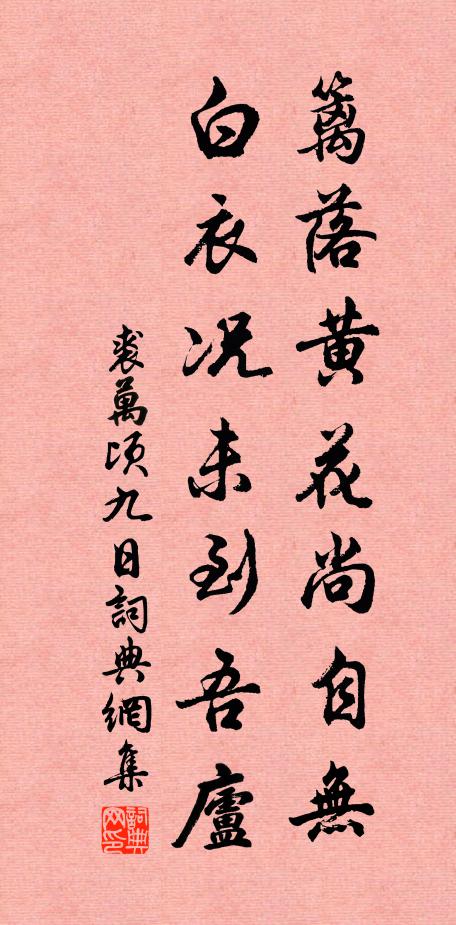 籬落黄花尚自無
白衣况未到吾廬
裘萬頃九日詞典網集
詞典网印